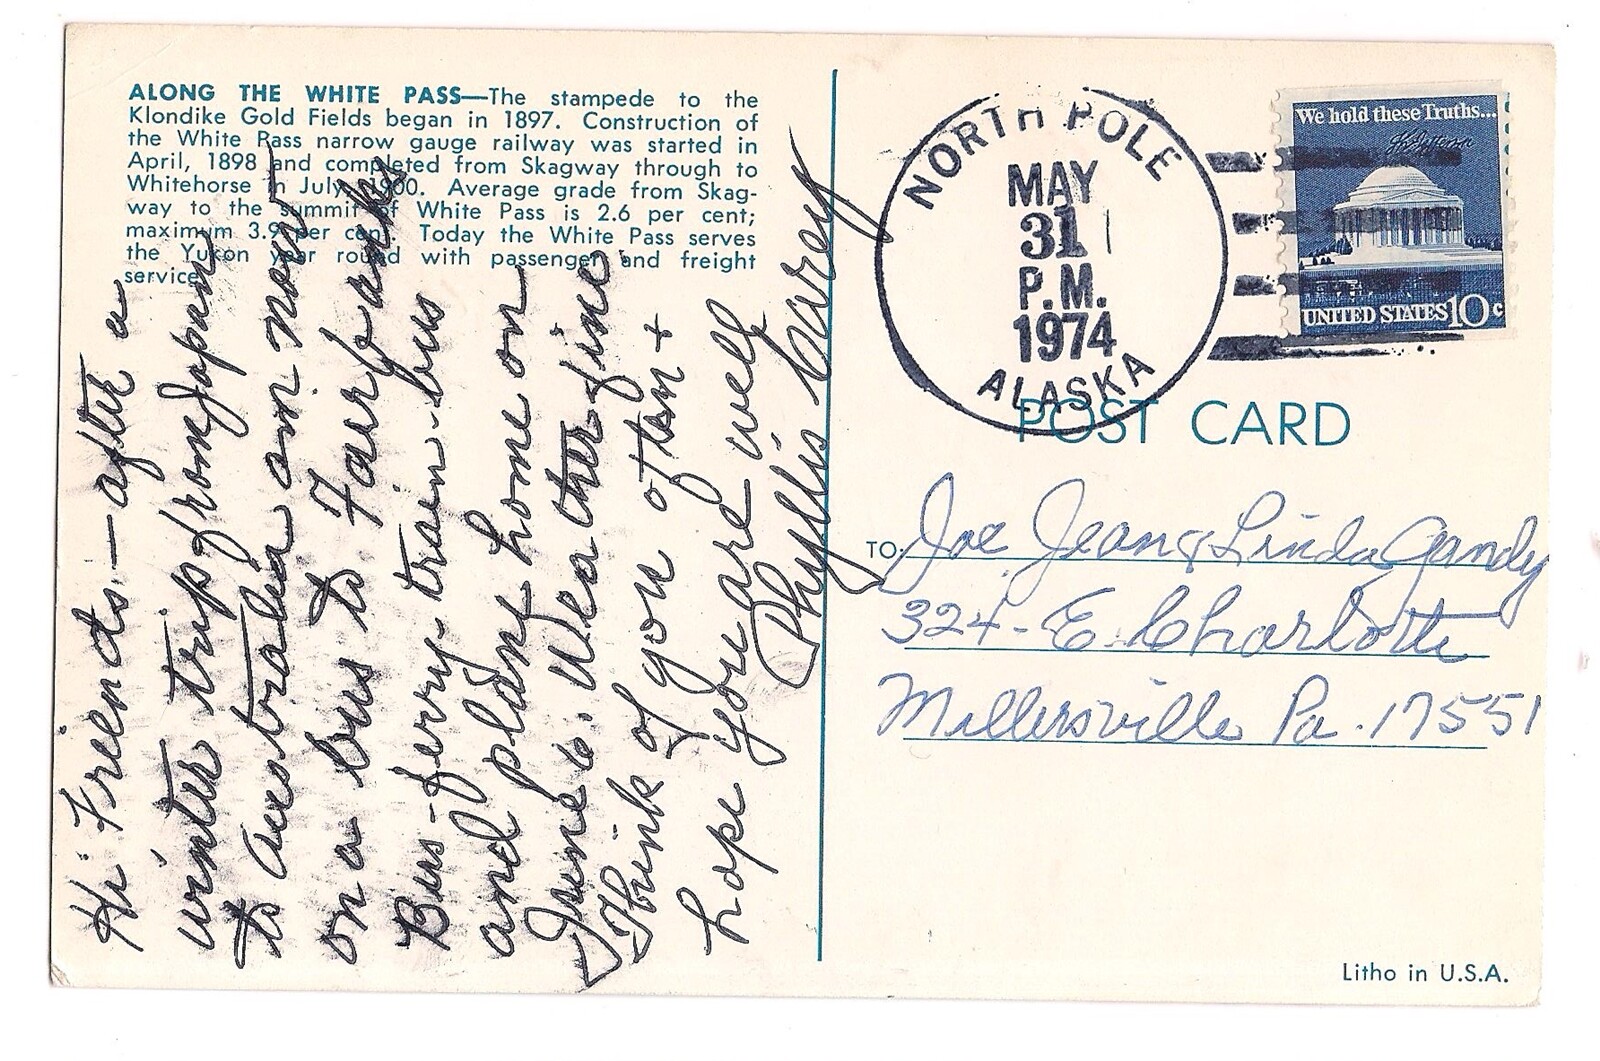 ALONG THE WHITE PASS—The stampede to the
Klondike Gold Fields began in 1897. Construction of
the White Pass narrow gauge railway was started in
April, 1898 and completed from Skagway through to
Whitehorse in July, 1900. Average grade from Skag-
way to the summit of White Pass is 2.6 per cent;
maximum 3.9 per cent. Today the White Pass serves
the Yukon year round with passenger and freight
service.
Hi Friends — after a
winter trip from Japan
to Australia am now
on a bus to Fairbanks
Bus-ferry-train-bus
and plane home on
June 6. Weather fine
Think of you often +
hope you are well
Phyllis
NORTH POLE
MAY
31
P.M.
1974
ALASKA
We hold these Truths...
UNITED STATES 10c
POST CARD
TO: Joe Jean & Linda Gandy
324 - E. Charlotte
Millersville Pa. 17551
Litho in U.S.A.